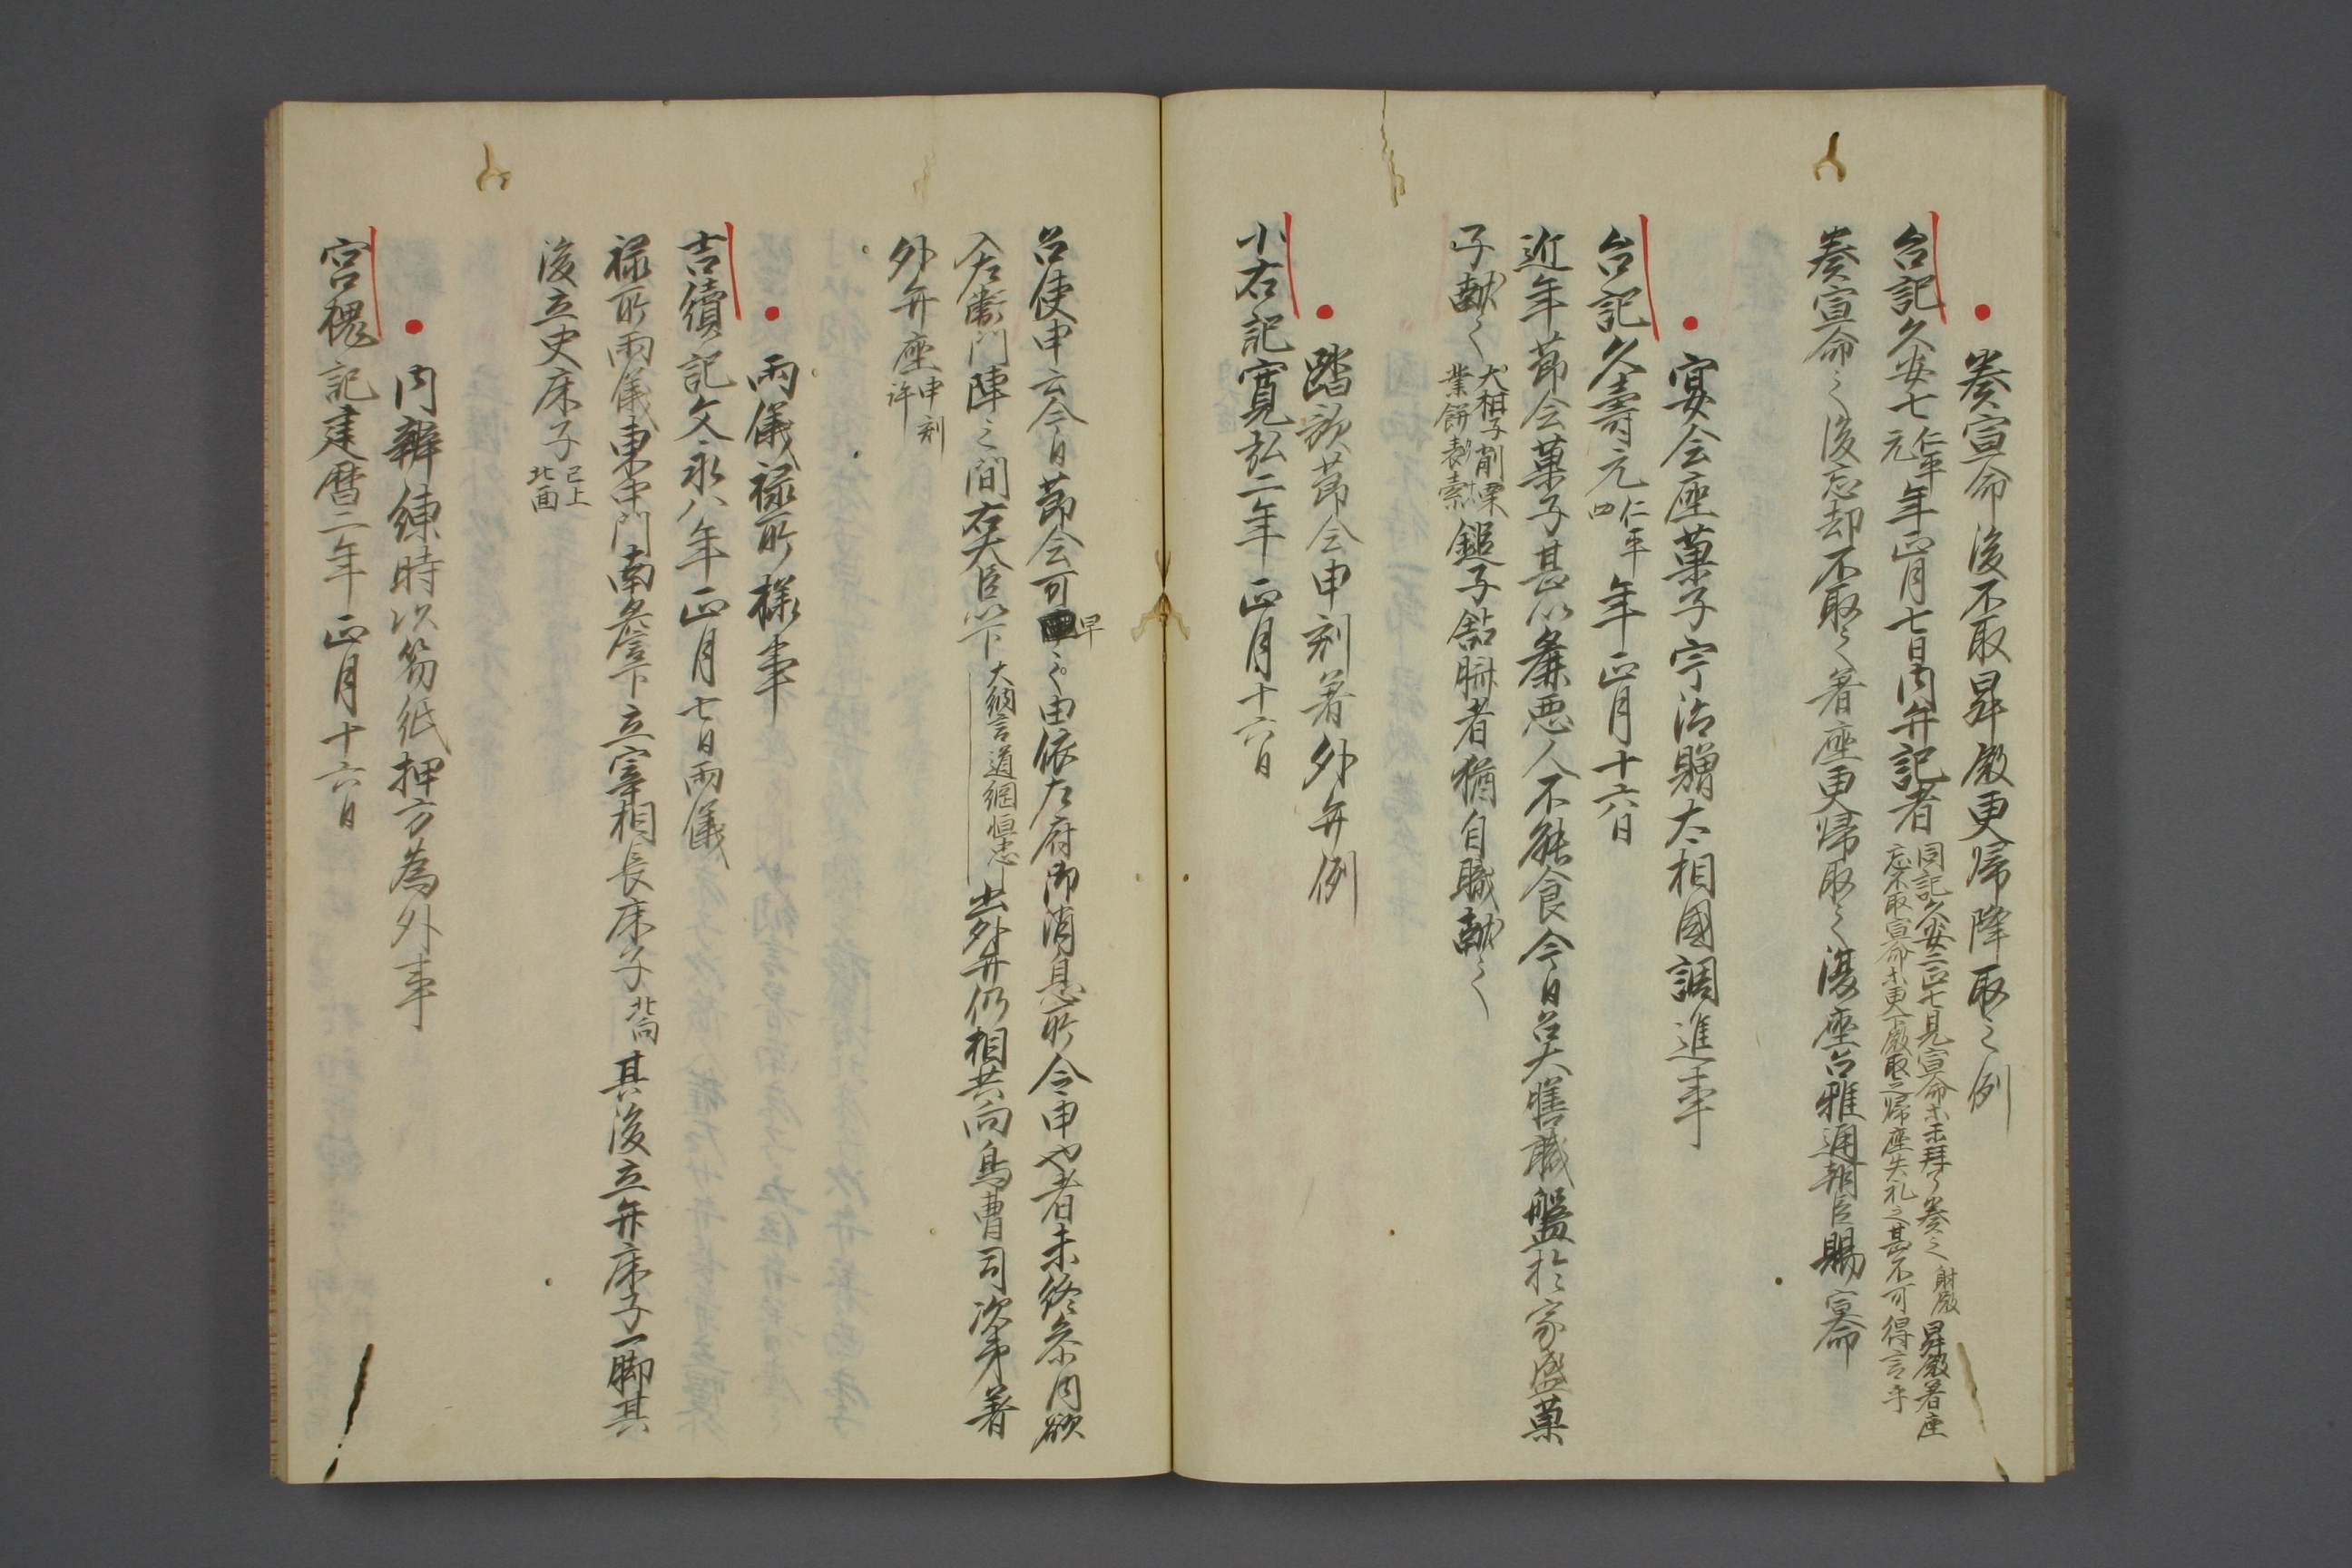 奏宣命後不取昇殿更帰降取之例
台記久安七仁平元年正月七日内弁記者同記久安二正七見宣命未拝了奏之射殿昇殿著座
忘不取宣命未更下殿取之帰座失礼之甚不可得言乎
奏宣命之後忘却不取之著座更帰取之復座召雅通朝臣賜宣命
宴会座菓子宇治贈太相國調進事
台記久壽元仁平四年正月十六日
近年節会菓子甚以麁悪人不能食今日召大膳職盤於家盛菓
子献之大柑子削栗業餅製索鎚子黏臍者猶自職献之
踏歌節会申刻著外弁例
小右記寛弘二年正月十六日
召使申云今日節会可早之由依左府御消息所令申也者未終参内欲
入左衛門陣之間右大臣以下大納言道綱恒忠出外弁仍相共向鳥曹司次第著
外弁座申刻許
雨儀禄所様事
吉續記文永八年正月七日雨儀
禄所雨儀東中門南廊下立宰相長床子北向其後立弁床子一脚其
後立史床子已上北面
内辨練時以笏紙押方為外事
宮槐記建暦二年正月十六日